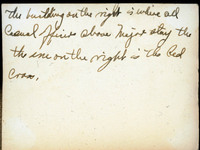 the building on the right is where all
Casual officers above Major stay the
the one on the right is the Red
Cross.